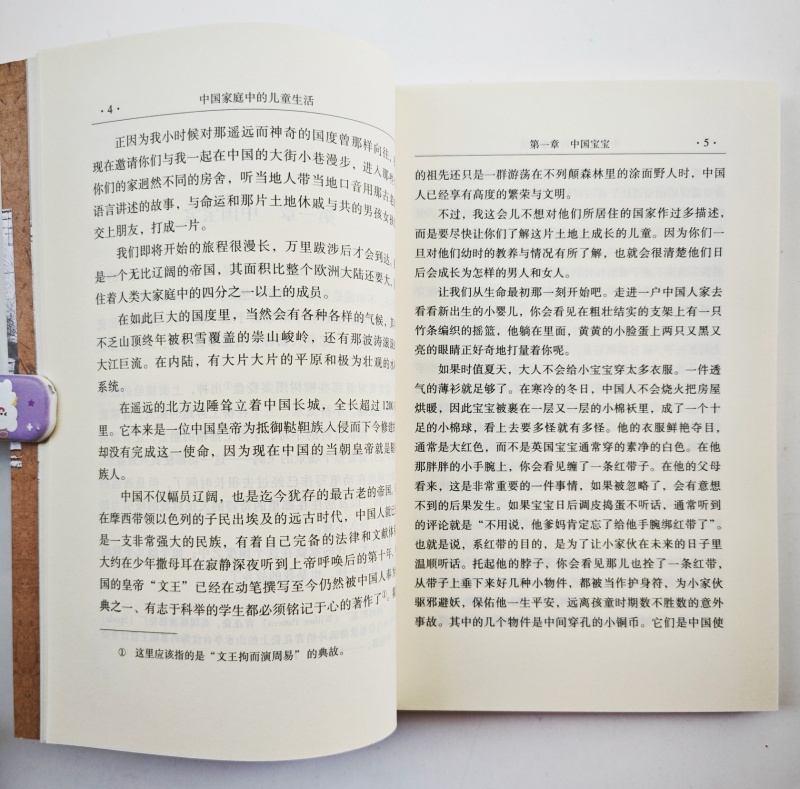 ·4·
中国家庭中的儿童生活
正因为我小时候对那遥远而神奇的国度曾那样向往，
现在邀请你们与我一起在中国的大街小巷漫步，进入那些
你们的家迥然不同的房舍，听当地人带当地口音用那古老
语言讲述的故事，与命运和那片土地休戚与共的男孩女孩
交上朋友，打成一片。
我们即将开始的旅程很漫长，万里跋涉后才会到达。
是一个无比辽阔的帝国，其面积比整个欧洲大陆还要大，
住着人类大家庭中的四分之一以上的成员。
在如此巨大的国度里，当然会有各种各样的气候，其
不乏山顶终年被积雪覆盖的崇山峻岭，还有那波涛滚滚
大江巨流。在内陆，有大片大片的平原和极为壮观的水
系统。
在遥远的北方边陲耸立着中国长城，全长超过1200
里。它本来是一位中国皇帝为抵御鞑靼族人入侵而下令修建
却没有完成这一使命，因为现在中国的当朝皇帝就是鞑
族人。
中国不仅幅员辽阔，也是迄今犹存的最古老的帝国。
在摩西带领以色列的子民出埃及的远古时代，中国人就已
是一支非常强大的民族，有着自己完备的法律和文献体
大约在少年撒母耳在寂静深夜听到上帝呼唤后的第十年，
国的皇帝“文王”已经在动笔撰写至今仍然被中国人奉为
典之一、有志于科举的学生都必须铭记于心的著作了①。
① 这里应该指的是“文王拘而演周易”的典故。
第一章 中国宝宝
·5·
的祖先还只是一群游荡在不列颠森林里的涂面野人时，中国
人已经享有高度的繁荣与文明。
不过，我这会儿不想对他们所居住的国家作过多描述，
而是要尽快让你们了解这片土地上成长的儿童。因为你们一
旦对他们幼时的教养与情况有所了解，也就会很清楚他们日
后会成长为怎样的男人和女人。
让我们从生命最初那一刻开始吧。走进一户中国人家去
看看新出生的小婴儿，你会看见在粗壮结实的支架上有一只
竹条编织的摇篮，他躺在里面，黄黄的小脸蛋上两只又黑又
亮的眼睛正好奇地打量着你呢。
如果时值夏天，大人不会给小宝宝穿太多衣服。一件透
气的薄衫就足够了。在寒冷的冬日，中国人不会烧火把房屋
烘暖，因此宝宝被裹在一层又一层的小棉袄里，成了一个十
足的小棉球，看上去要多怪就有多怪。他的衣服鲜艳夺目，
通常是大红色，而不是英国宝宝通常穿的素净的白色。在他
那胖胖的小手腕上，你会看见缠了一条红带子。在他的父母
看来，这是非常重要的一件事情，如果被忽略了，会有意想
不到的后果发生。如果宝宝日后调皮捣蛋不听话，通常听到
的评论就是“不用说，他爹妈肯定忘了给他手腕绑红带了”。
也就是说，系红带的目的，是为了让小家伙在未来的日子里
温顺听话。托起他的脖子，你会看见那儿也拴了一条红带，
从带子上垂下来好几种小物件，都被当作护身符，为小家伙
驱邪避妖，保佑他一生平安，远离孩童时期数不胜数的意外
事故。其中的几个物件是中间穿孔的小铜币。它们是中国使